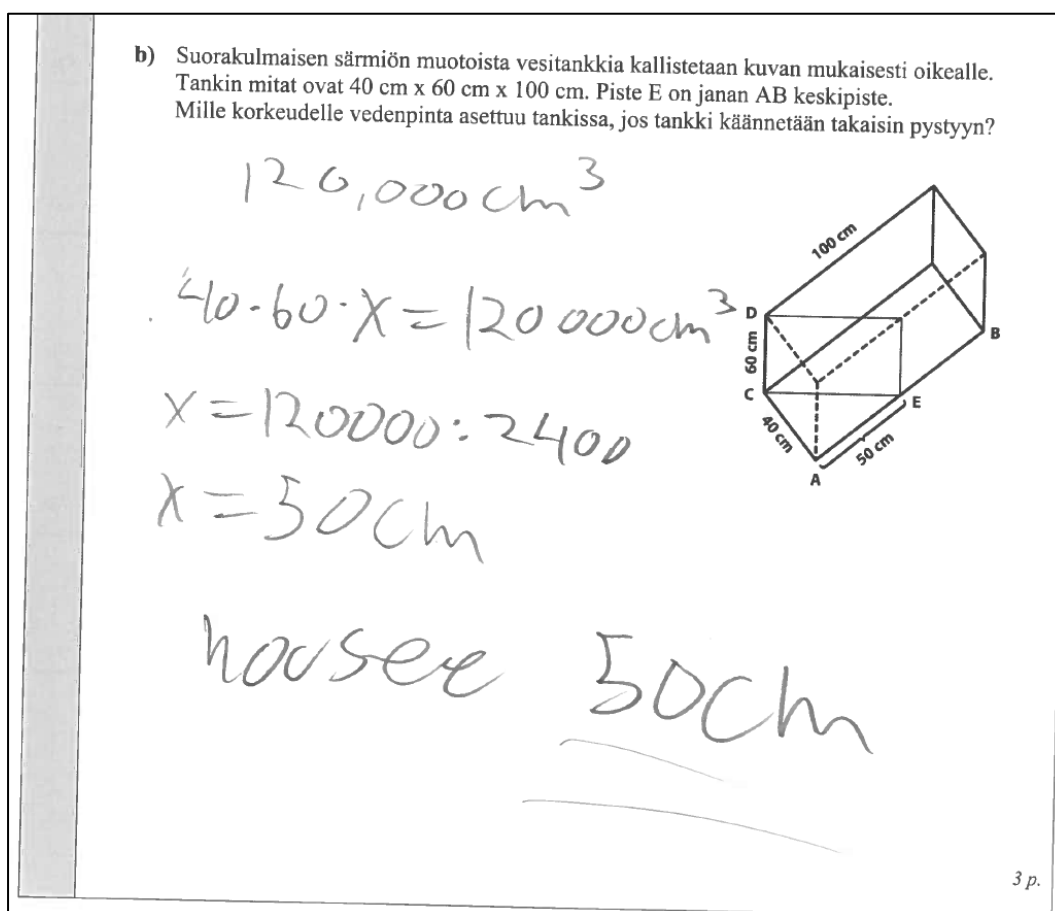 b) Suorakulmaisen särmiön muotoista vesitankkia kallistetaan kuvan mukaisesti oikealle.
Tankin mitat ovat 40 cm x 60 cm x 100 cm. Piste E on janan AB keskipiste.
Mille korkeudelle vedenpinta asettuu tankissa, jos tankki käännetään takaisin pystyyn?
120,000 cm³
40·60·x=120 000 cm³
x=120000:2400
x=50cm
nousee 50cm
100 cm
D
60 cm
B
C
E
40 cm
50 cm
A
3 p.